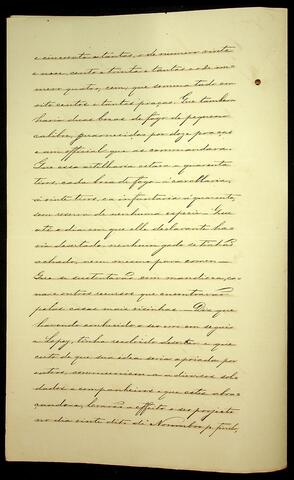 e cincoenta e tantos, o de numero vinte
e nove, cento e trinta e tantos e o de nu-
mero quatro, cem, que somma tudo em
oito centos e tantas praças. Que tambem
havia duas bocas de fogo de pequeno
calibre, guarnecidas por doze praças
e um official que as commandava.
Que essa artilharia estava a quarenta
tiros, cada boca de fogo, a cavallaria,
a vinte tiros, ea infantaria á quarenta,
sem reserva de nenhuma especie. Que
até o dia em que elle declarante ha-
via desertado nenhum gado se tinha
achado, nem mesmo para comer.
Que se sustentavão com mandioca, ca-
na e outros recursos que encontravão
pelas casas mais visinhas. Diz que
havendo conhecido o seo erro em seguir
a Lopez, tinha resolvido e que
certo de que sua idéa seria apoiada por
outros, communicou-a a diversos sol-
dados e companheiros e que estes abra-
çando-a, levárão a effeito o seo projecto
no dia vinte oito de Novembro p. findo,